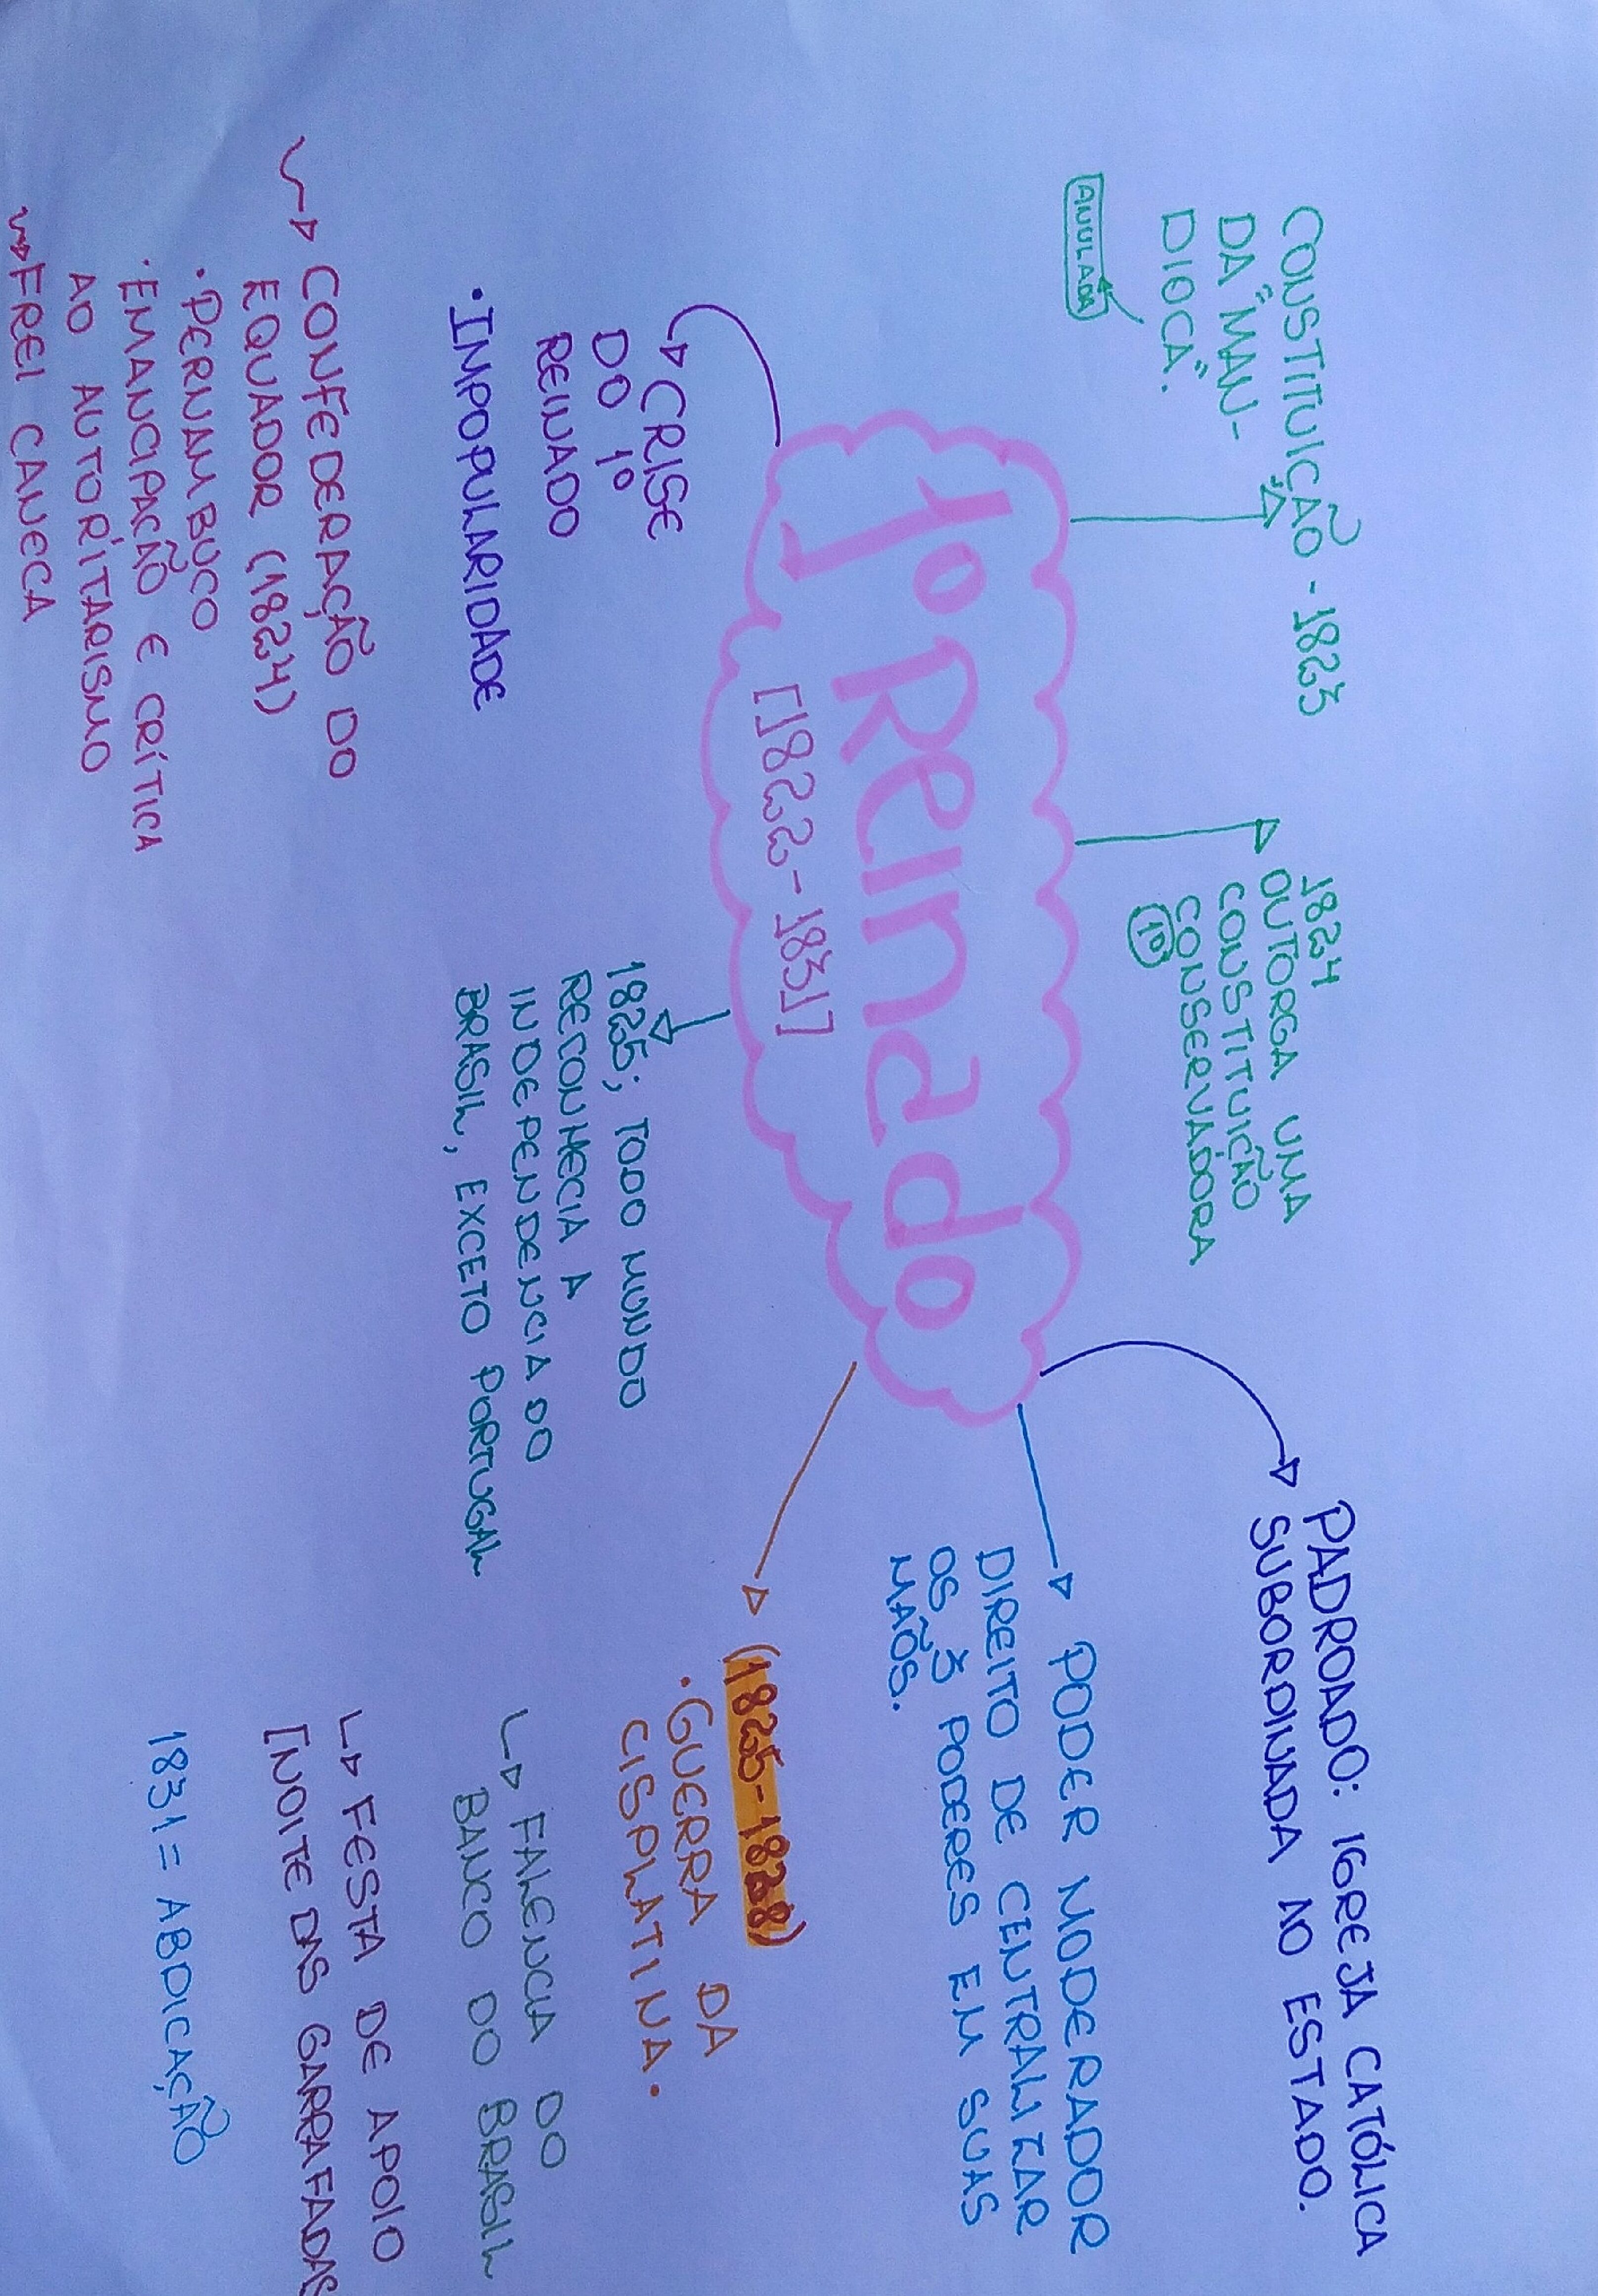 1º Reinado
[1822-1831]
CONSTITUIÇÃO - 1823
DA "MAN-
DIOCA".
ANULADA
1824
OUTORGA UMA
CONSTITUIÇÃO
CONSERVADORA
1º
PADROADO: IGREJA CATÓLICA
SUBORDINADA AO ESTADO.
PODER MODERADOR
DIREITO DE CENTRALIZAR
OS 3 PODERES EM SUAS
MAÕS.
(1825-1828)
• GUERRA DA
CISPLATINA.
1825; TODO MUNDO
RECONHECIA A
INDEPENDENCIA DO
BRASIL, EXCETO PORTUGAL
CRISE
DO 1º
REINADO
• IMPOPULARIDADE
CONFEDERAÇÃO DO
EQUADOR (1824)
• PERNAMBUCO
• EMANCIPAÇÃO E CRÍTICA
AO AUTORITARISMO
FREI CANECA
FALENCIA DO
BANCO DO BRASIL
FESTA DE APOIO
[NOITE DAS GARRAFADAS
1831 = ABDICAÇÃO